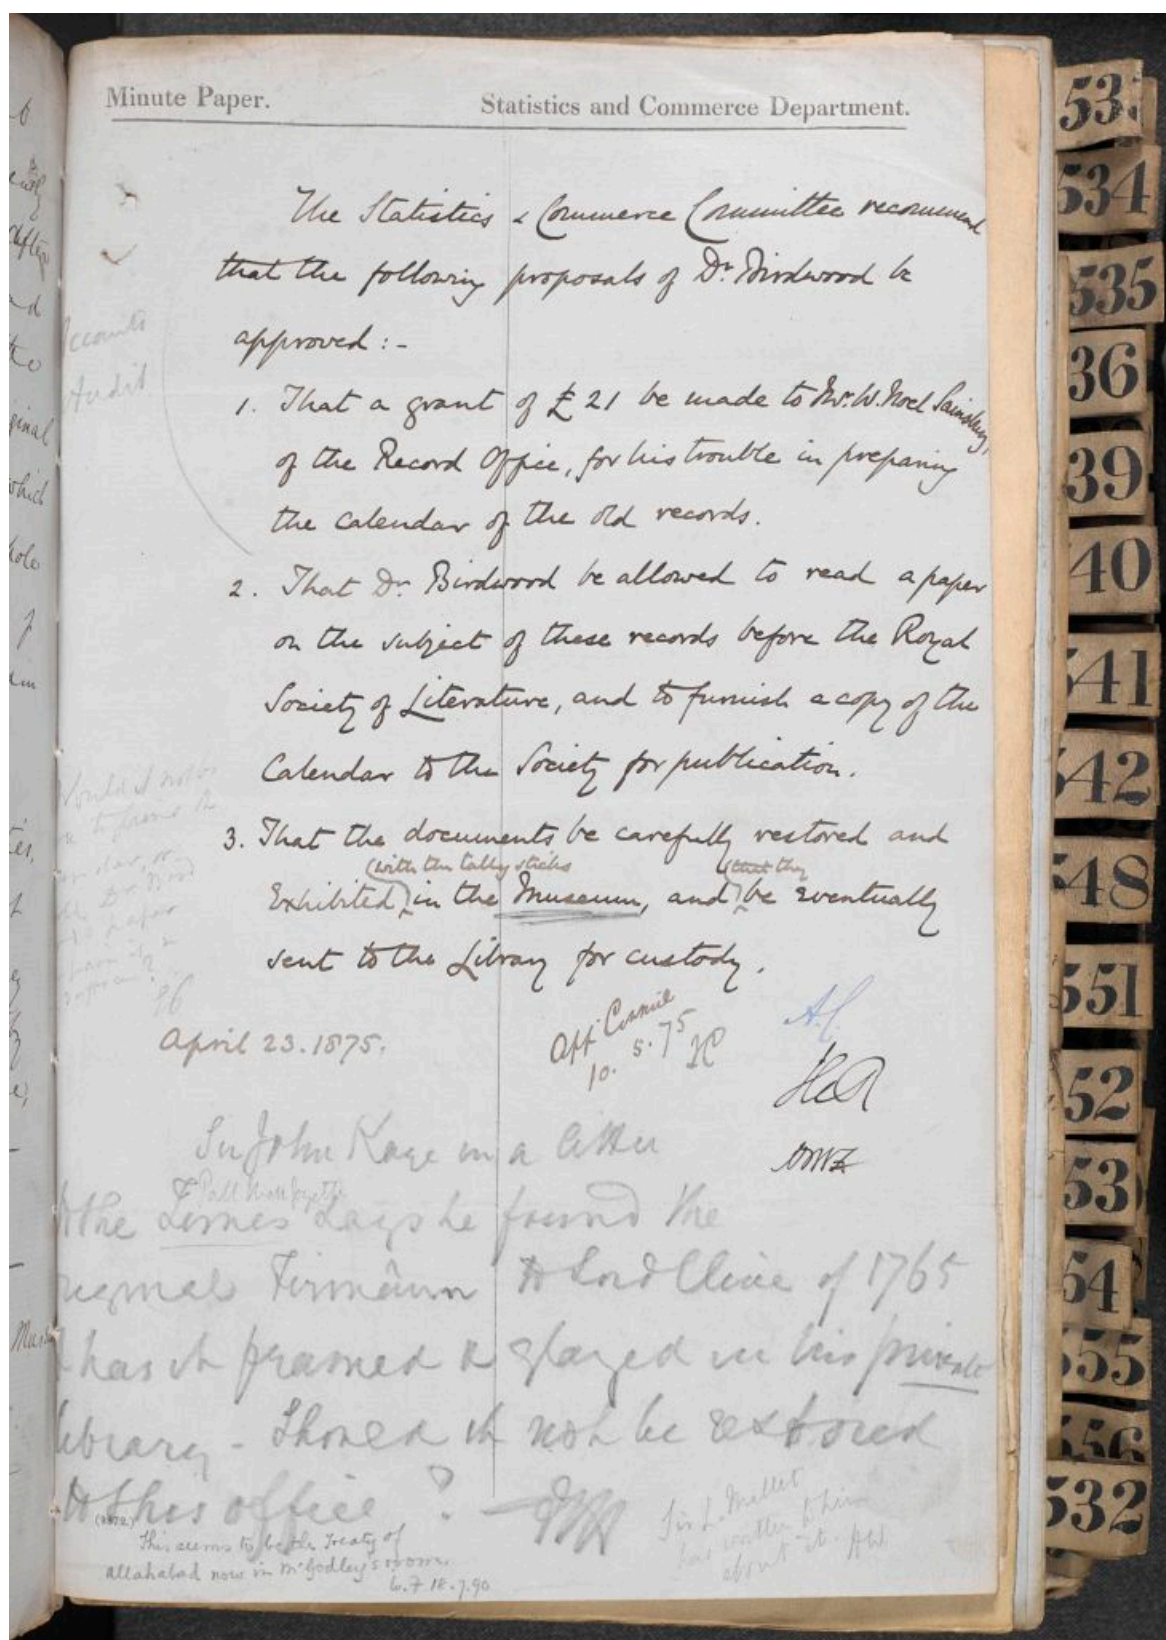 Minute Paper.
Statistics and Commerce Department.
The Statistics & Commerce Committee recommend
that the following proposals of Dr. Birdwood be
approved :-
Accounts
Audit
1. That a grant of £21 be made to Mr. W. Noel Sainsbury,
of the Record Office, for his trouble in preparing
the Calendar of the old records.
2. That Dr. Birdwood be allowed to read a paper
on the subject of these records before the Royal
Society of Literature, and to furnish a copy of the
Calendar to the Society for publication.
3. That the documents be carefully restored and
(with the tally sticks
that they
Exhibited) in the Museum, and be eventually
sent to the Library for custody.
April 23. 1875.
10. 5. 75
A.C.
Sir John Kaye in a letter
Pall Mall Gazette
to the Times says he found the
original Firmaun to Lord Clive of 1765
& has it framed & glazed in his private
library - Should it not be restored
to this office ?
Sir L. Mallet
has written to him
about it.
This seems to be the Treaty of
Allahabad now in Mr Godley's room.
18.7.90
533
534
535
36
39
40
541
542
548
551
52
53
54
555
556
532